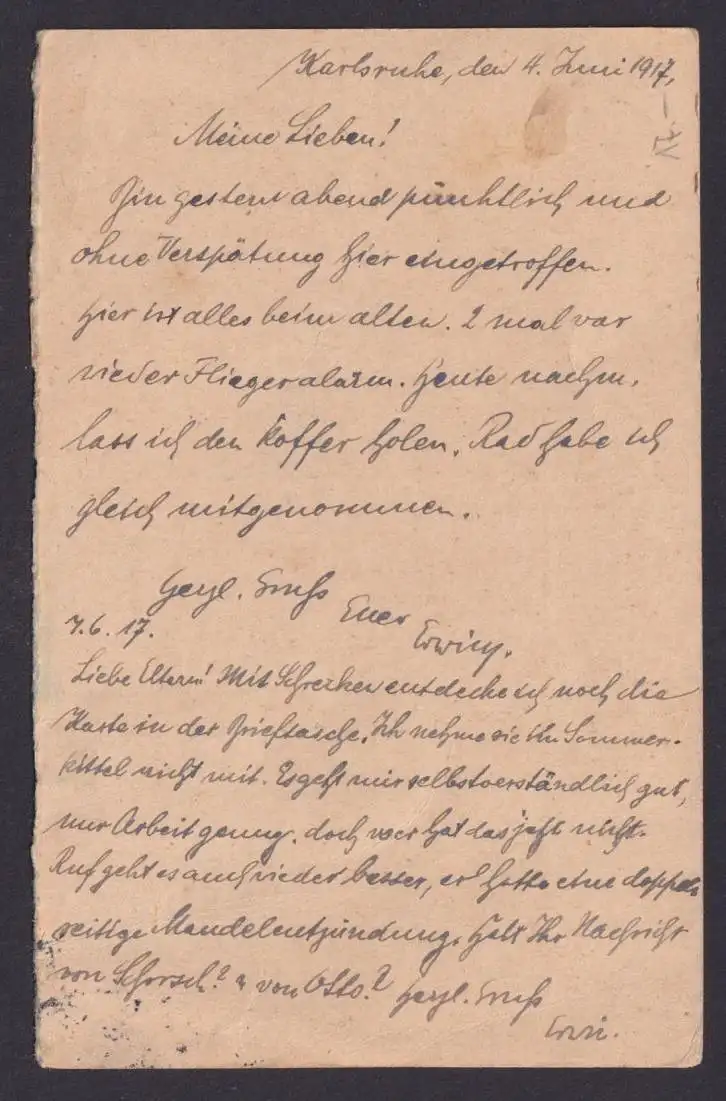 Karlsruhe, den 4. Juni 1917,
Meine Lieben!
Bin gestern abend pünktlich und
ohne Verspätung hier eingetroffen.
Hier ist alles beim alten. 2 mal war
wieder Fliegeralarm. Heute nachm.
lass ich den Koffer holen. Rad habe ich
gleich mitgenommen.
Herzl. Gruß
Euer
Erwin.
7.6.17.
Liebe Eltern! Mit Schrecken entdecke ich noch die
Karte in der Brieftasche. Ich nehme sie im Sommer-
kittel nicht mit. Es geht mir selbstverständlich gut,
nur Arbeit genug. doch wer hat das jetzt nicht.
geht es auch wieder besser, er hatte eine doppel
seitige Mandelentzündung. Habt Ihr Nachricht
von Schorsch? u von Otto? Herzl. Gruß
Erwi.